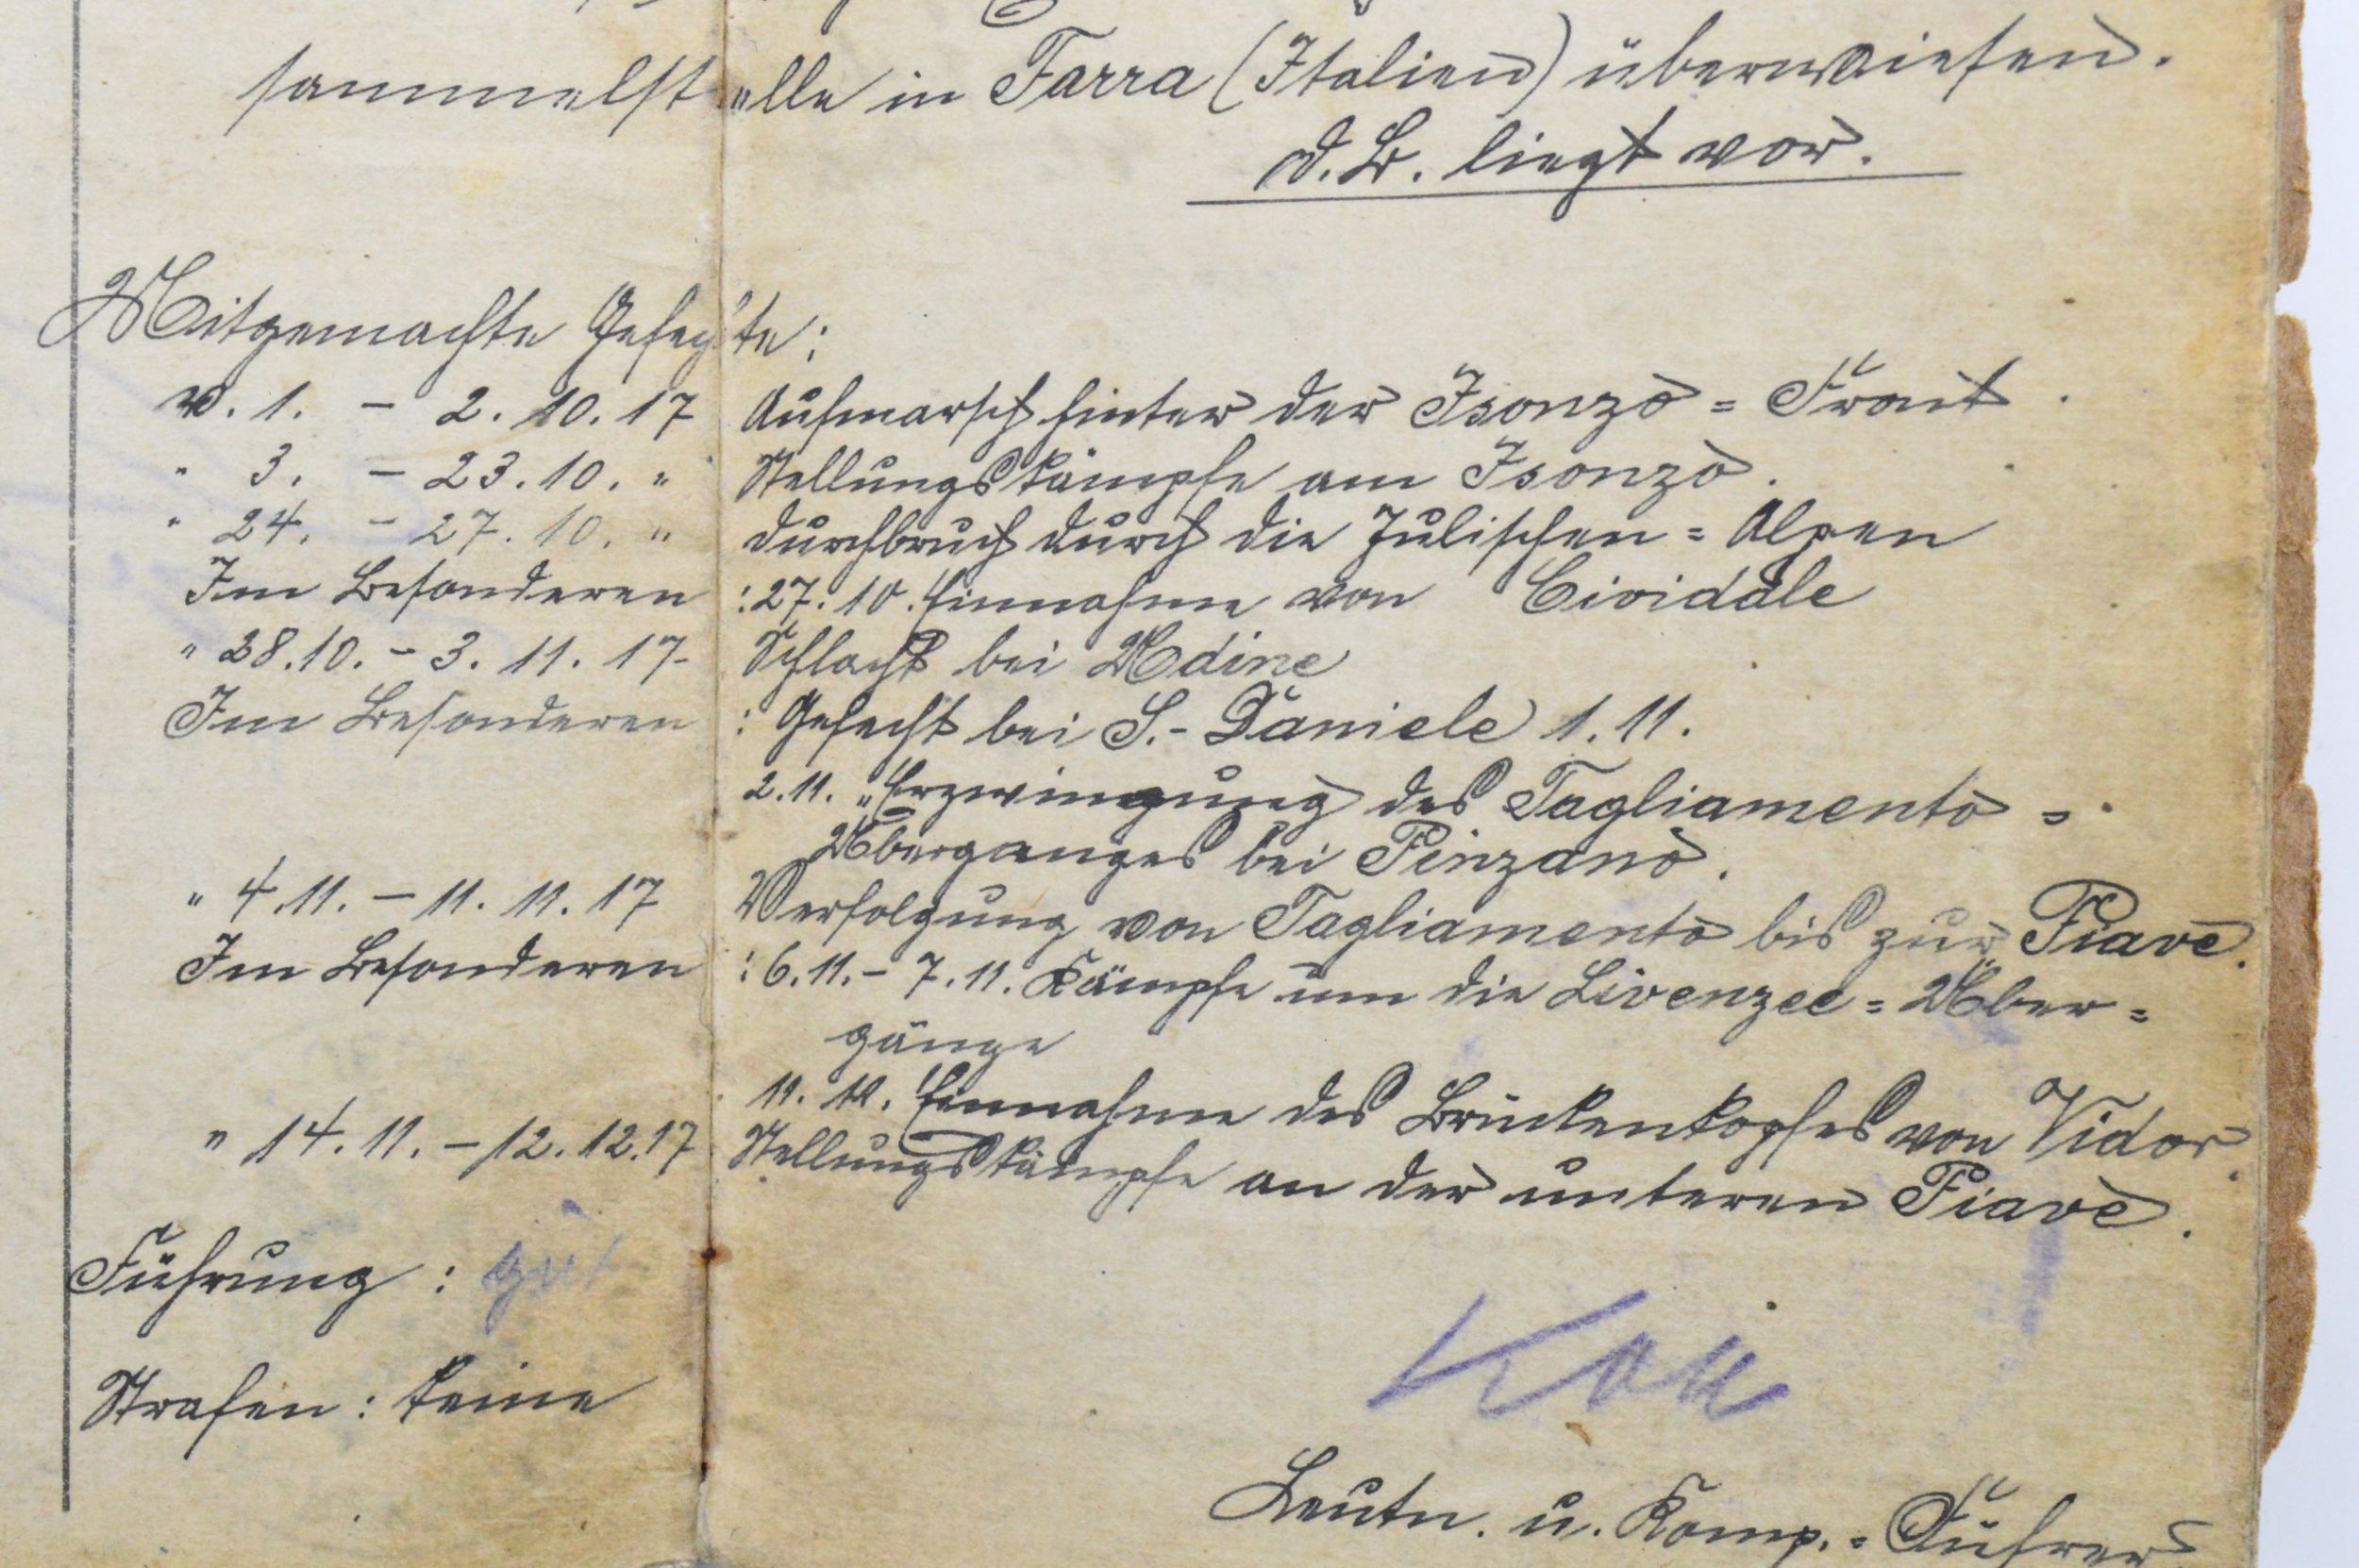 sammelstelle in Farra (Italien) überwiesen.
d. B. liegt vor.
Mitgemachte Gefechte:
v. 1. - 2. 10. 17 Aufmarsch hinter der Isonzo = Front.
" 3. - 23. 10. " Stellungskämpfe am Isonzo.
" 24. - 27. 10. " Durchbruch durch die Julischen = Alpen
Im Besonderen : 27. 10. Einnahme von Cividale
" 28. 10. - 3. 11. 17 Schlacht bei Udine
Im Besonderen : Gefecht bei S. - Daniele 1. 11.
2. 11. " Erzwingung des Tagliamento =
Überganges bei Pinzano.
" 4. 11. - 11. 11. 17 Verfolgung von Tagliamento bis zur Piave.
Im Besonderen : 6. 11. - 7. 11. Kämpfe um die Livenzee = Über =
gänge
11. 11. Einnahme des Brückenkopfes von Vidor.
" 14. 11. - 12. 12. 17 Stellungskämpfe an der unteren Piave.
Führung : gut
Strafen : keine
Leutn. u. Komp. = Führer